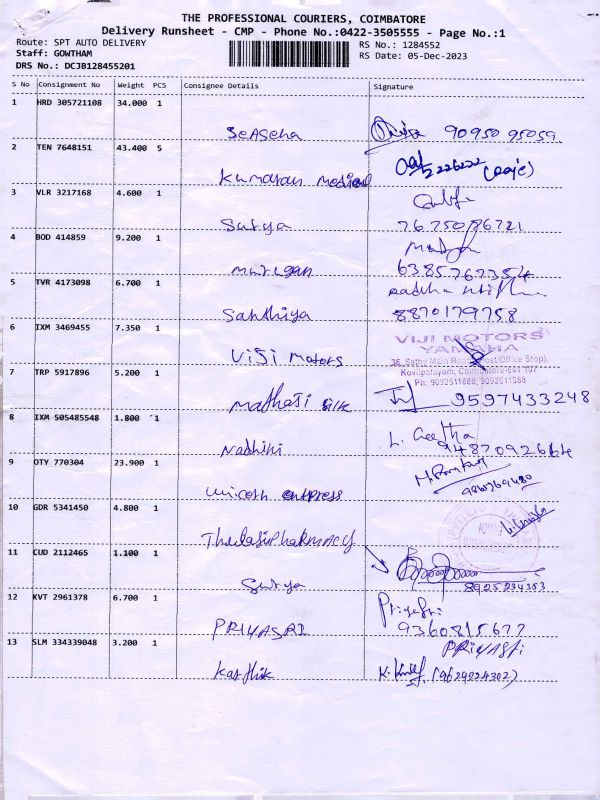 THE PROFESSIONAL COURIERS, COIMBATORE
Delivery Runsheet - CMP - Phone No.:0422-3505555 - Page No.:1
Route: SPT AUTO DELIVERY
RS No.: 1284552
Staff: GOWTHAM
RS Date: 05-Dec-2023
DRS No.: DCJB128455201
S No Consignment No Weight PCS Consignee Details Signature
1 HRD 305721108 34.000 1
90950 95059
2 TEN 7648151 43.400 5
Kumaran Medical
3 VLR 3217168 4.600 1
Surya
4 BOD 414859 9.200 1
Murugan
5 TVR 4173098 6.700 1
Santhiya 8870179758
6 IXM 3469455 7.350 1
VIJI MOTORS
YAMAHA
Viji Motors
36, Sathy Main Road, (Post Office Stop),
Kovilpalayam, Coimbatore-641 107
Ph: 9092511888, 9092611888
7 TRP 5917896 5.200 1
silk 9597433248
8 IXM 505485548 1.800 1
L. Geetha
Nadhini
9 OTY 770304 23.900 1
10 GDR 5341450 4.800 1
11 CUD 2112465 1.100 1
Surya 8925224353
12 KVT 2961378 6.700 1
PRIYASRI 9360815677
13 SLM 334339048 3.200 1
Karthik (9629224302)